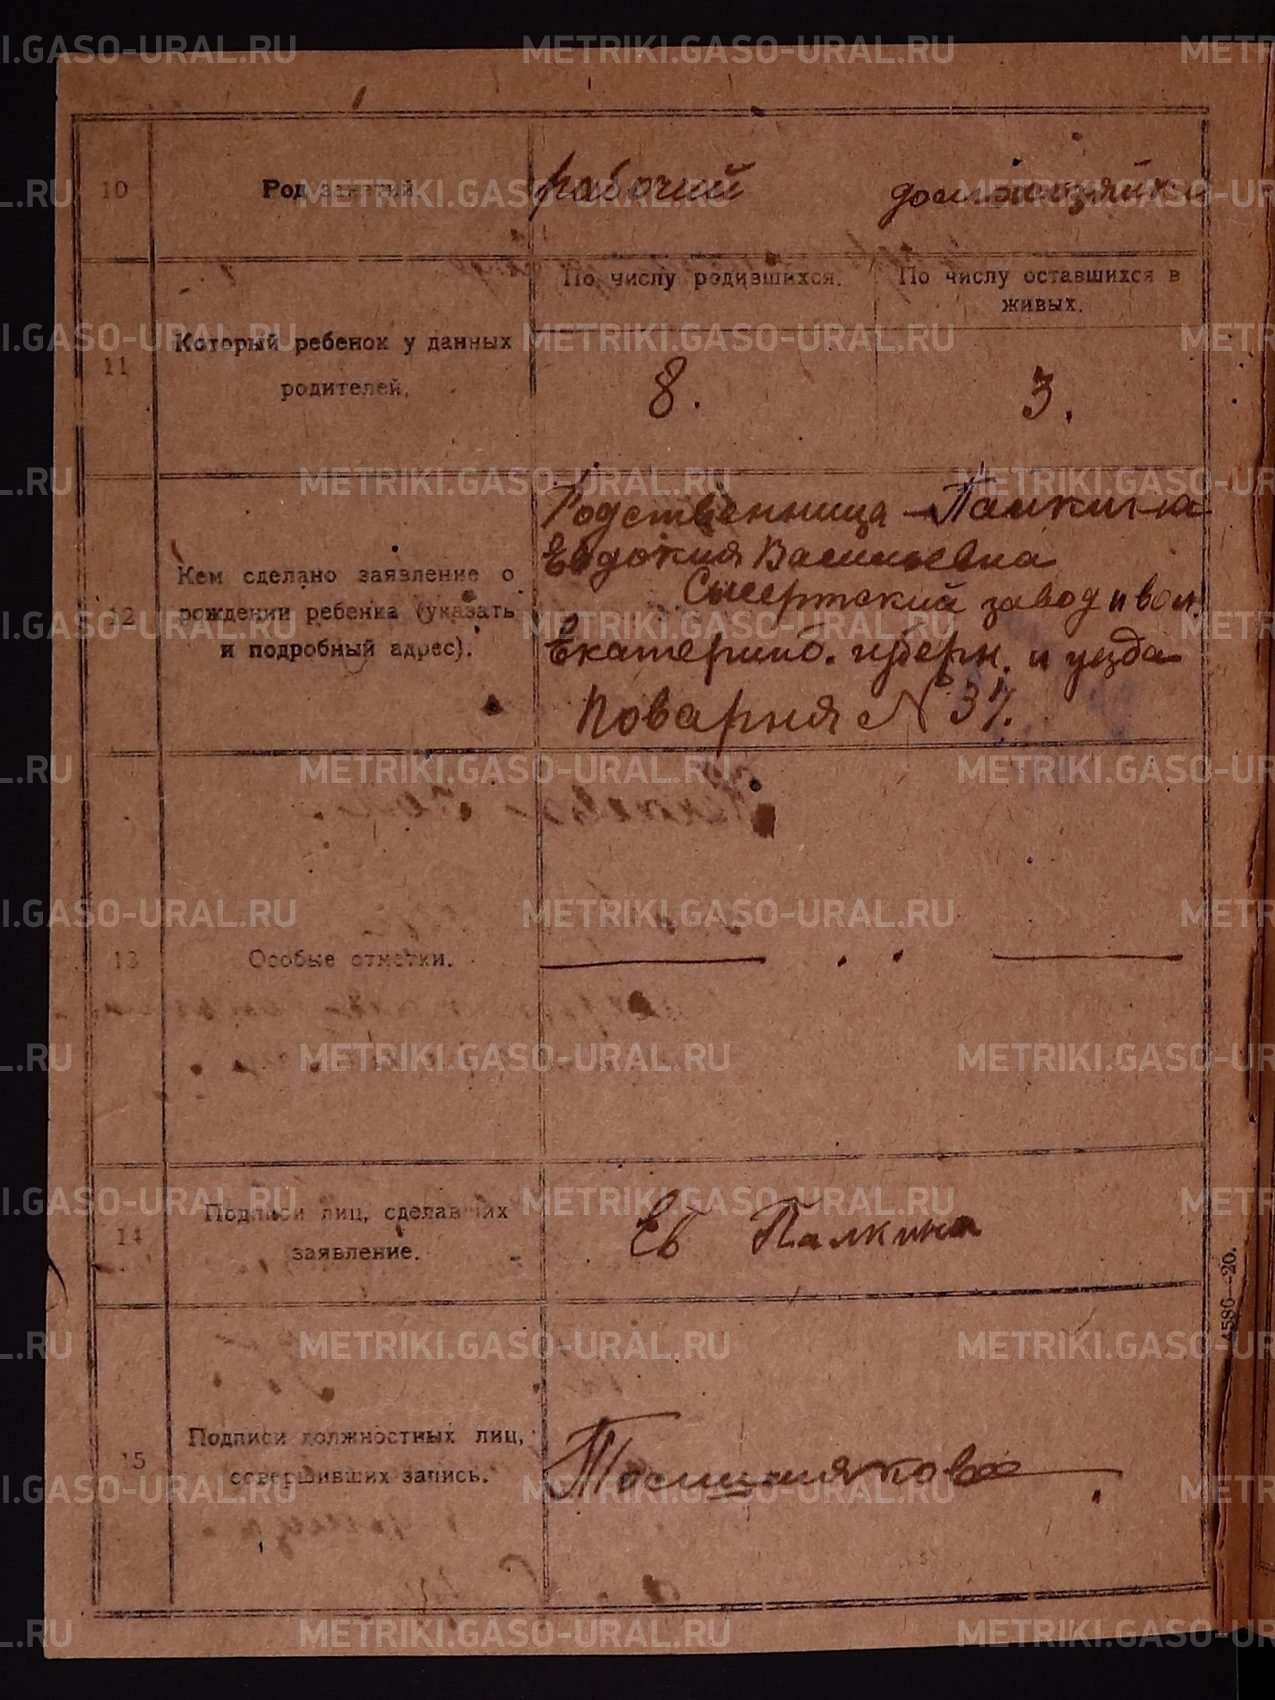 10 Род занятий. рабочий домохозяйка
По числу родившихся. По числу оставшихся в
живых.
11 Который ребенок у данных
родителей.
8. 3.
Родственница - Палкина
Евдокия Васильевна
12 Кем сделано заявление о
рождении ребенка (указать
и подробный адрес).
Сысертский завод и вол.
Екатеринб. губерн. и уезда
Поварня № 37.
13 Особые отметки.
14 Подписи лиц, сделавших
заявление.
Ев Палкина
15 Подписи должностных лиц,
совершивших запись.
4586—20.
METRIKI.GASO-URAL.RU